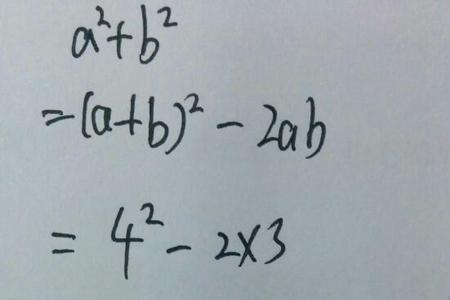 a²+b²
=(a+b)²-2ab
=4²-2×3